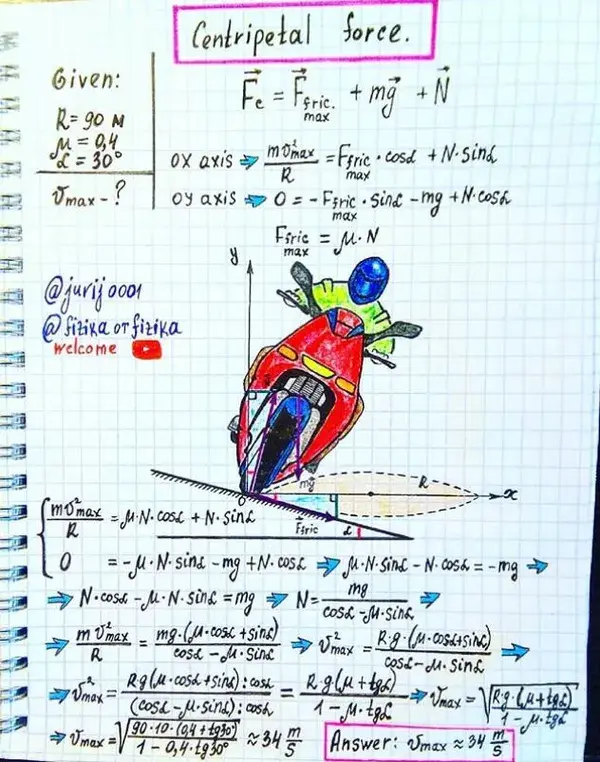 Centripetal force.
Given:
R = 90 м
μ = 0,4
α = 30°
υmax - ?
F⃗c = F⃗fric. max + mg⃗ + N⃗
OX axis ⇒ mυ²max / R = Ffric max · cosα + N·sinα
OY axis ⇒ 0 = -Ffric max · sinα - mg + N·cosα
Ffric max = μ·N
y
@jurij0001
@fizika от fizika
welcome
mg⃗
R
O
x
F⃗fric
α
{ mυ²max / R = μ·N·cosα + N·sinα
0 = -μ·N·sinα - mg + N·cosα ⇒ μ·N·sinα - N·cosα = -mg ⇒
⇒ N·cosα - μ·N·sinα = mg ⇒ N = mg / (cosα - μ·sinα) ⇒
⇒ mυ²max / R = mg·(μ·cosα + sinα) / (cosα - μ·sinα) ⇒ υ²max = R·g·(μ·cosα + sinα) / (cosα - μ·sinα) ⇒
⇒ υ²max = R·g(μ·cosα + sinα) : cosα / (cosα - μ·sinα) : cosα = R·g(μ + tgα) / (1 - μ·tgα) ⇒ υmax = √(R·g·(μ + tgα) / (1 - μ·tgα))
⇒ υmax = √(90·10·(0,4 + tg30°) / (1 - 0,4·tg30°)) ≈ 34 m/s
Answer: υmax ≈ 34 m/s